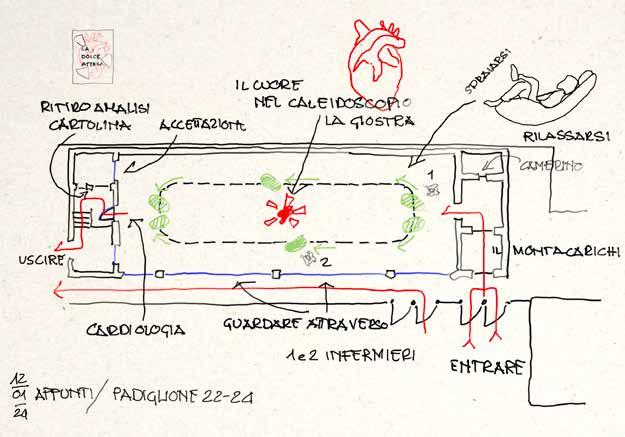 LA
DOLCE
ATTESA
IL CUORE
NEL CALEIDOSCOPIO
LA GIOSTRA
SDRAIARSI
RILASSARSI
RITIRO ANALISI
CARTOLINA
ACCETTAZIONE
CAMERINO
1
USCIRE
2
MONTACARICHI
CARDIOLOGIA
GUARDARE ATTRAVERSO
1 e 2 INFERMIERI
ENTRARE
12
01
24
APPUNTI / PADIGLIONE 22-24